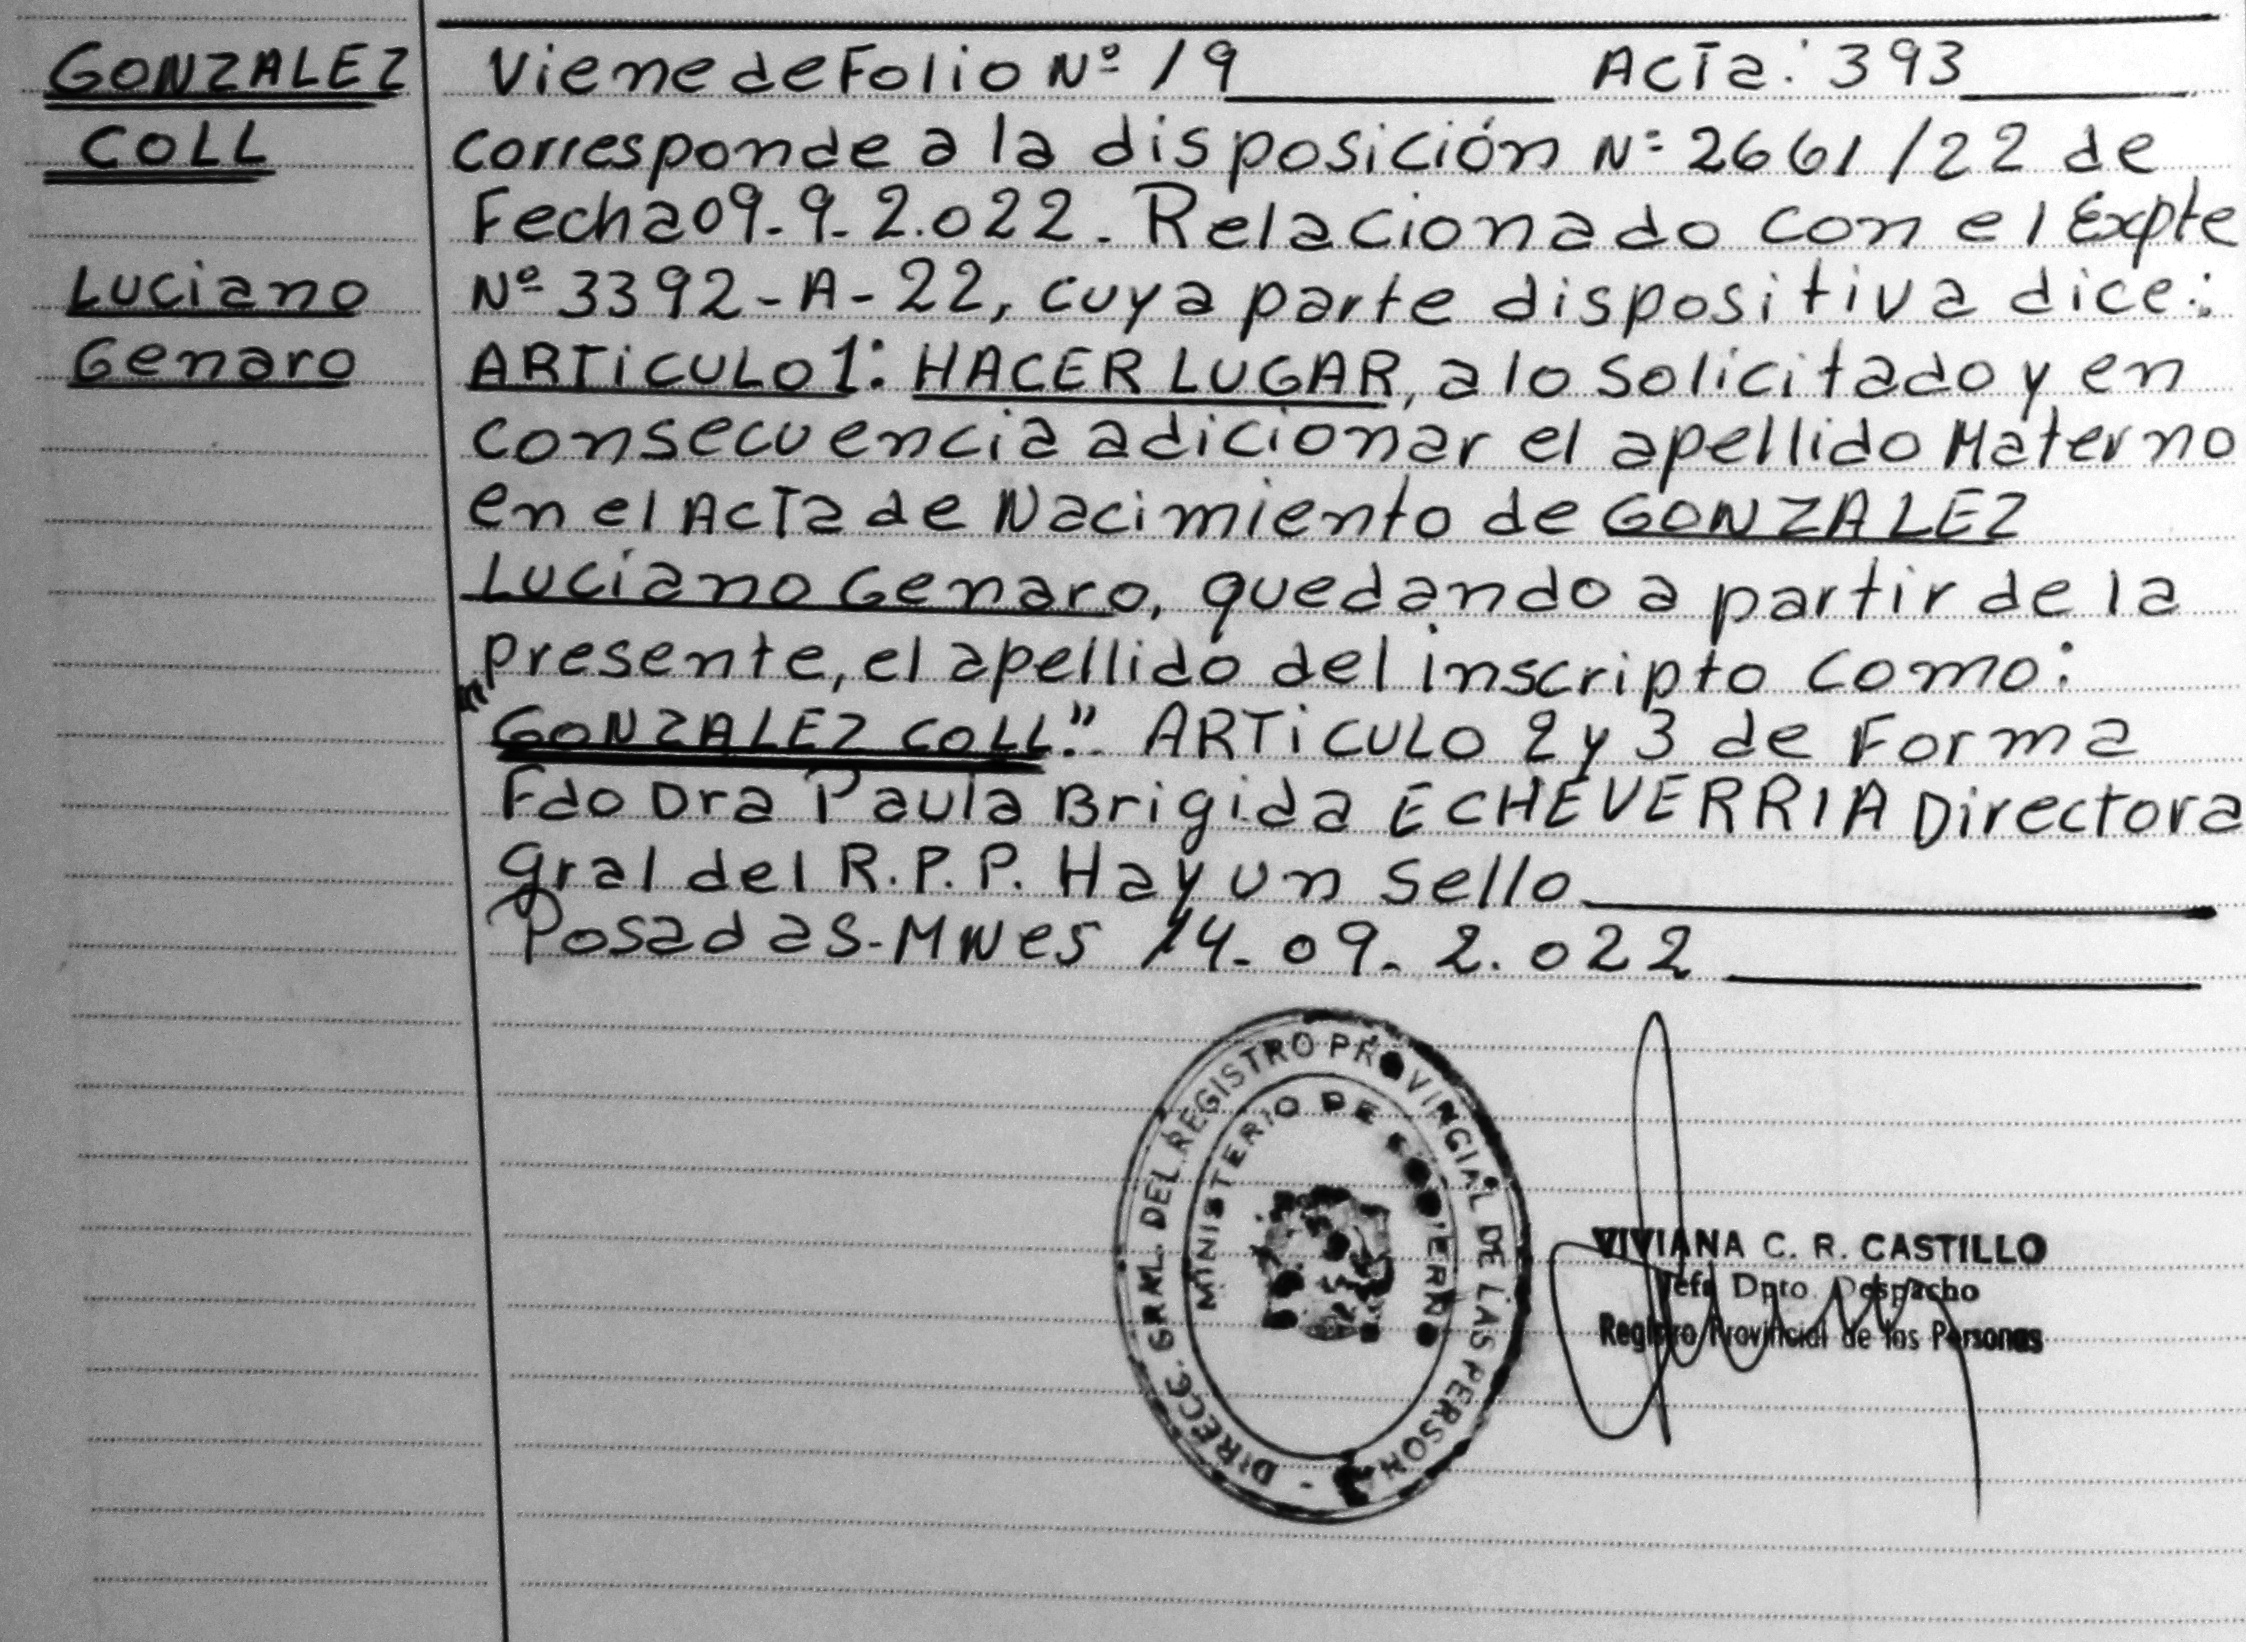 GONZALEZ
COLL
Luciano
Genaro
Viene de Folio Nº 19 Acta: 393
corresponde a la disposición Nº 2661/22 de
Fecha 09-9-2.022. Relacionado con el Expte
Nº 3392-A-22, cuya parte dispositiva dice:
ARTICULO 1: HACER LUGAR, a lo solicitado y en
consecuencia adicionar el apellido Materno
en el Acta de Nacimiento de GONZALEZ
Luciano Genaro, quedando a partir de la
presente, el apellido del inscripto como:
"GONZALEZ COLL". ARTICULO 2 y 3 de Forma
Fdo Dra Paula Brigida ECHEVERRIA Directora
gral del R.P.P. Hay un Sello
Posadas-MNes 14-09-2.022
DIRECC. GRAL. DEL REGISTRO PROVINCIAL DE LAS PERSONAS
MINISTERIO DE GOBIERNO
VIVIANA C. R. CASTILLO
Jefe Dpto. Despacho
Registro Provincial de las Personas